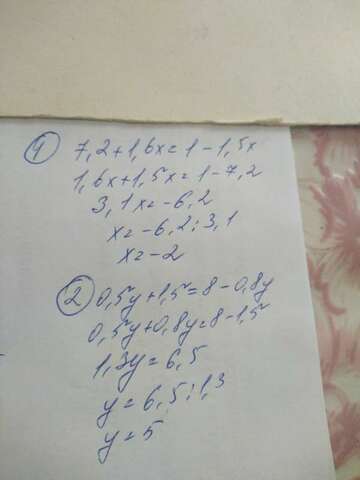 1
7,2+1,6x=1-1,5x
1,6x+1,5x=1-7,2
3,1x=-6,2
x=-6,2:3,1
x=-2
2 0,5y+1,5=8-0,8y
0,5y+0,8y=8-1,5
1,3y=6,5
y=6,5:1,3
y=5